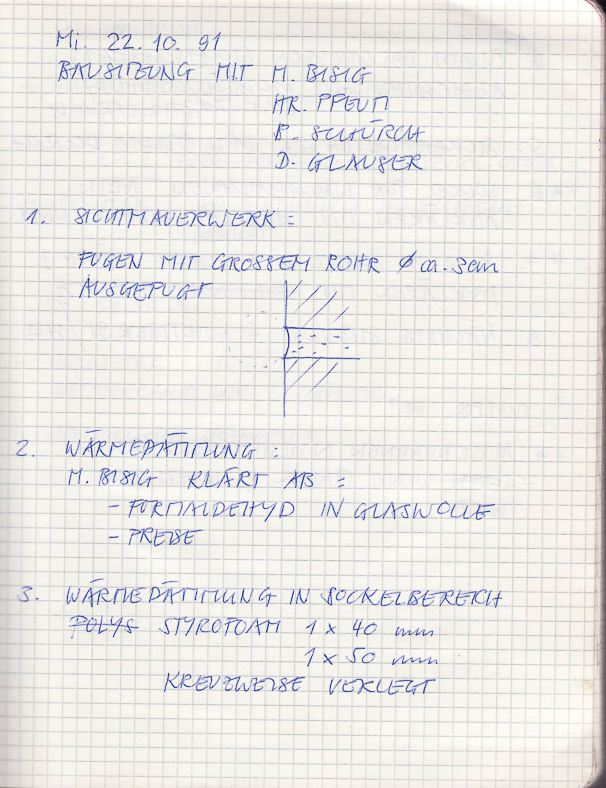 Mi. 22.10.91
BAUSITZUNG MIT M. BISIG
HR. PFEUTI
B. SCHÜRCH
D. GLAUSER
1. SICHTMAUERWERK :
FUGEN MIT GROSSEM ROHR Ø ca. 3cm
AUSGEFUGT
2. WÄRMEDÄMMUNG :
M. BISIG KLÄRT AB :
- FORMALDEHYD IN GLASWOLLE
- PREISE
3. WÄRMEDÄMMUNG IN SOCKELBEREICH
POLYS STYROFOAM 1 x 40 mm
1 x 50 mm
KREUZWEISE VERLEGT